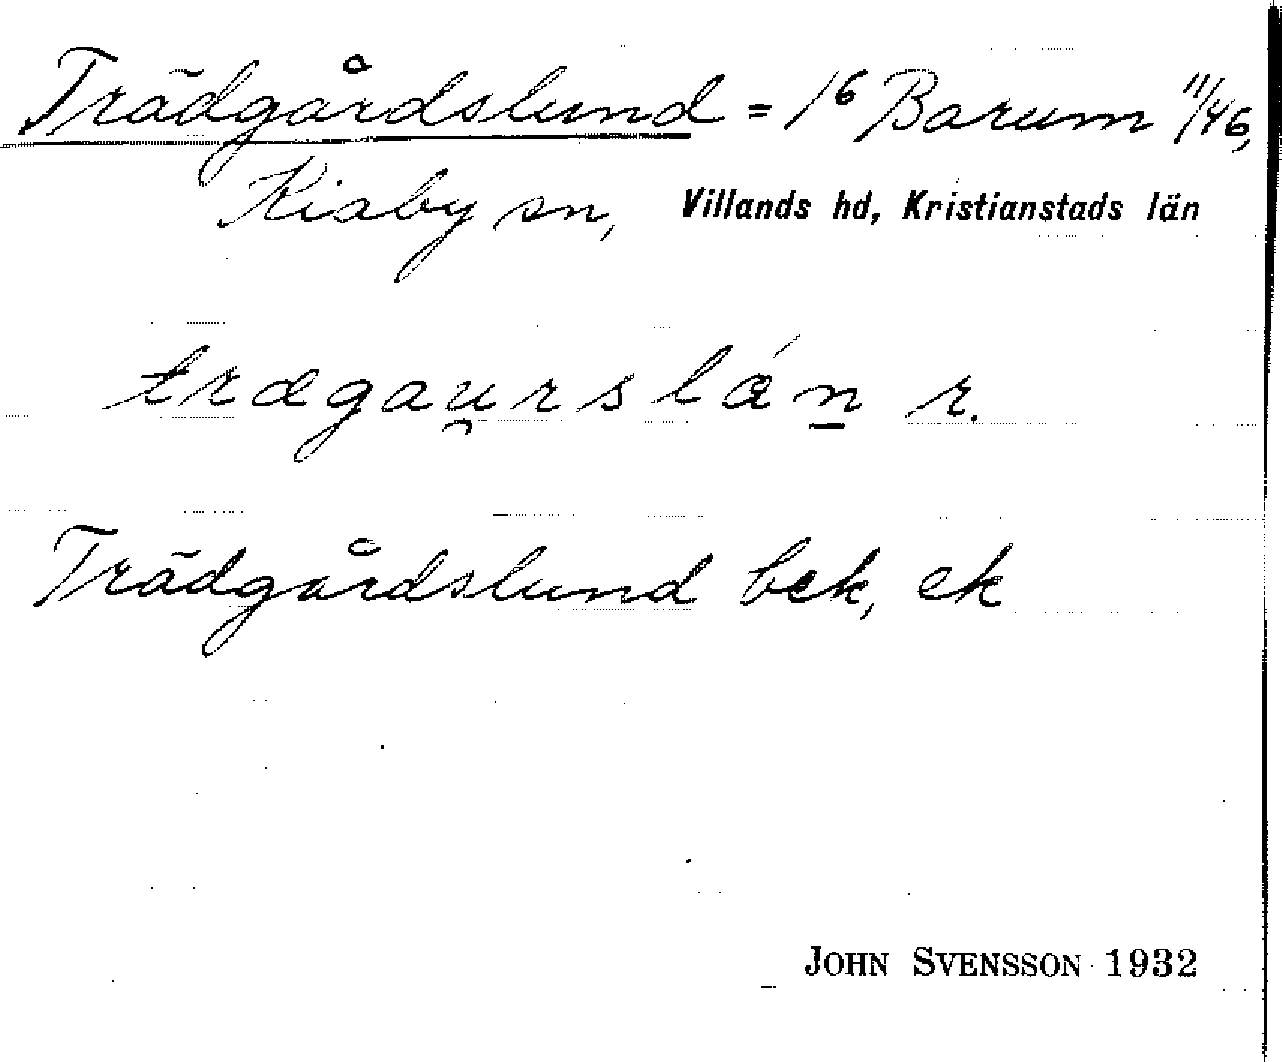 Trädgårdslund = 1⁶ Barum 11/46,
Kiaby sn, Villands hd, Kristianstads län
trægau̯rslán̠ r.
Trädgårdslund bek, ek
JOHN SVENSSON 1932